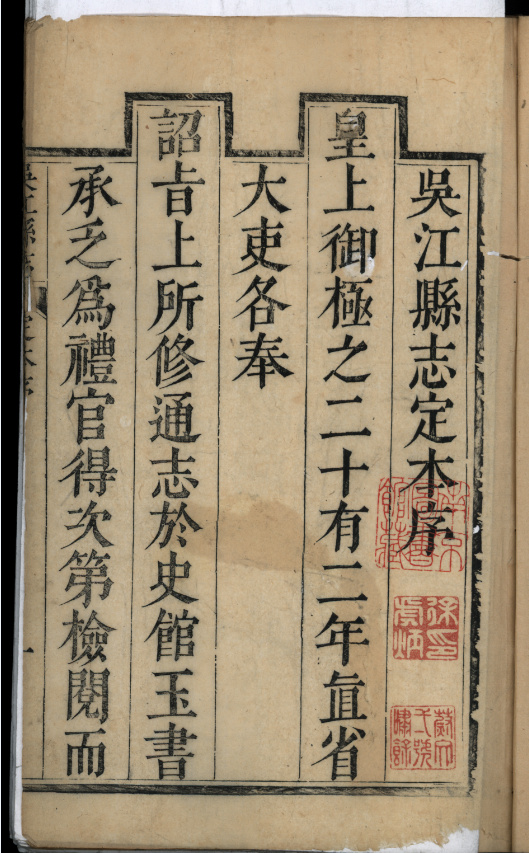 吳江縣志定本序
皇上御極之二十有二年直省
大吏各奉
詔旨上所修通志於史館玉書
承乏爲禮官得次第檢閱而
吳江縣志
定本序
一